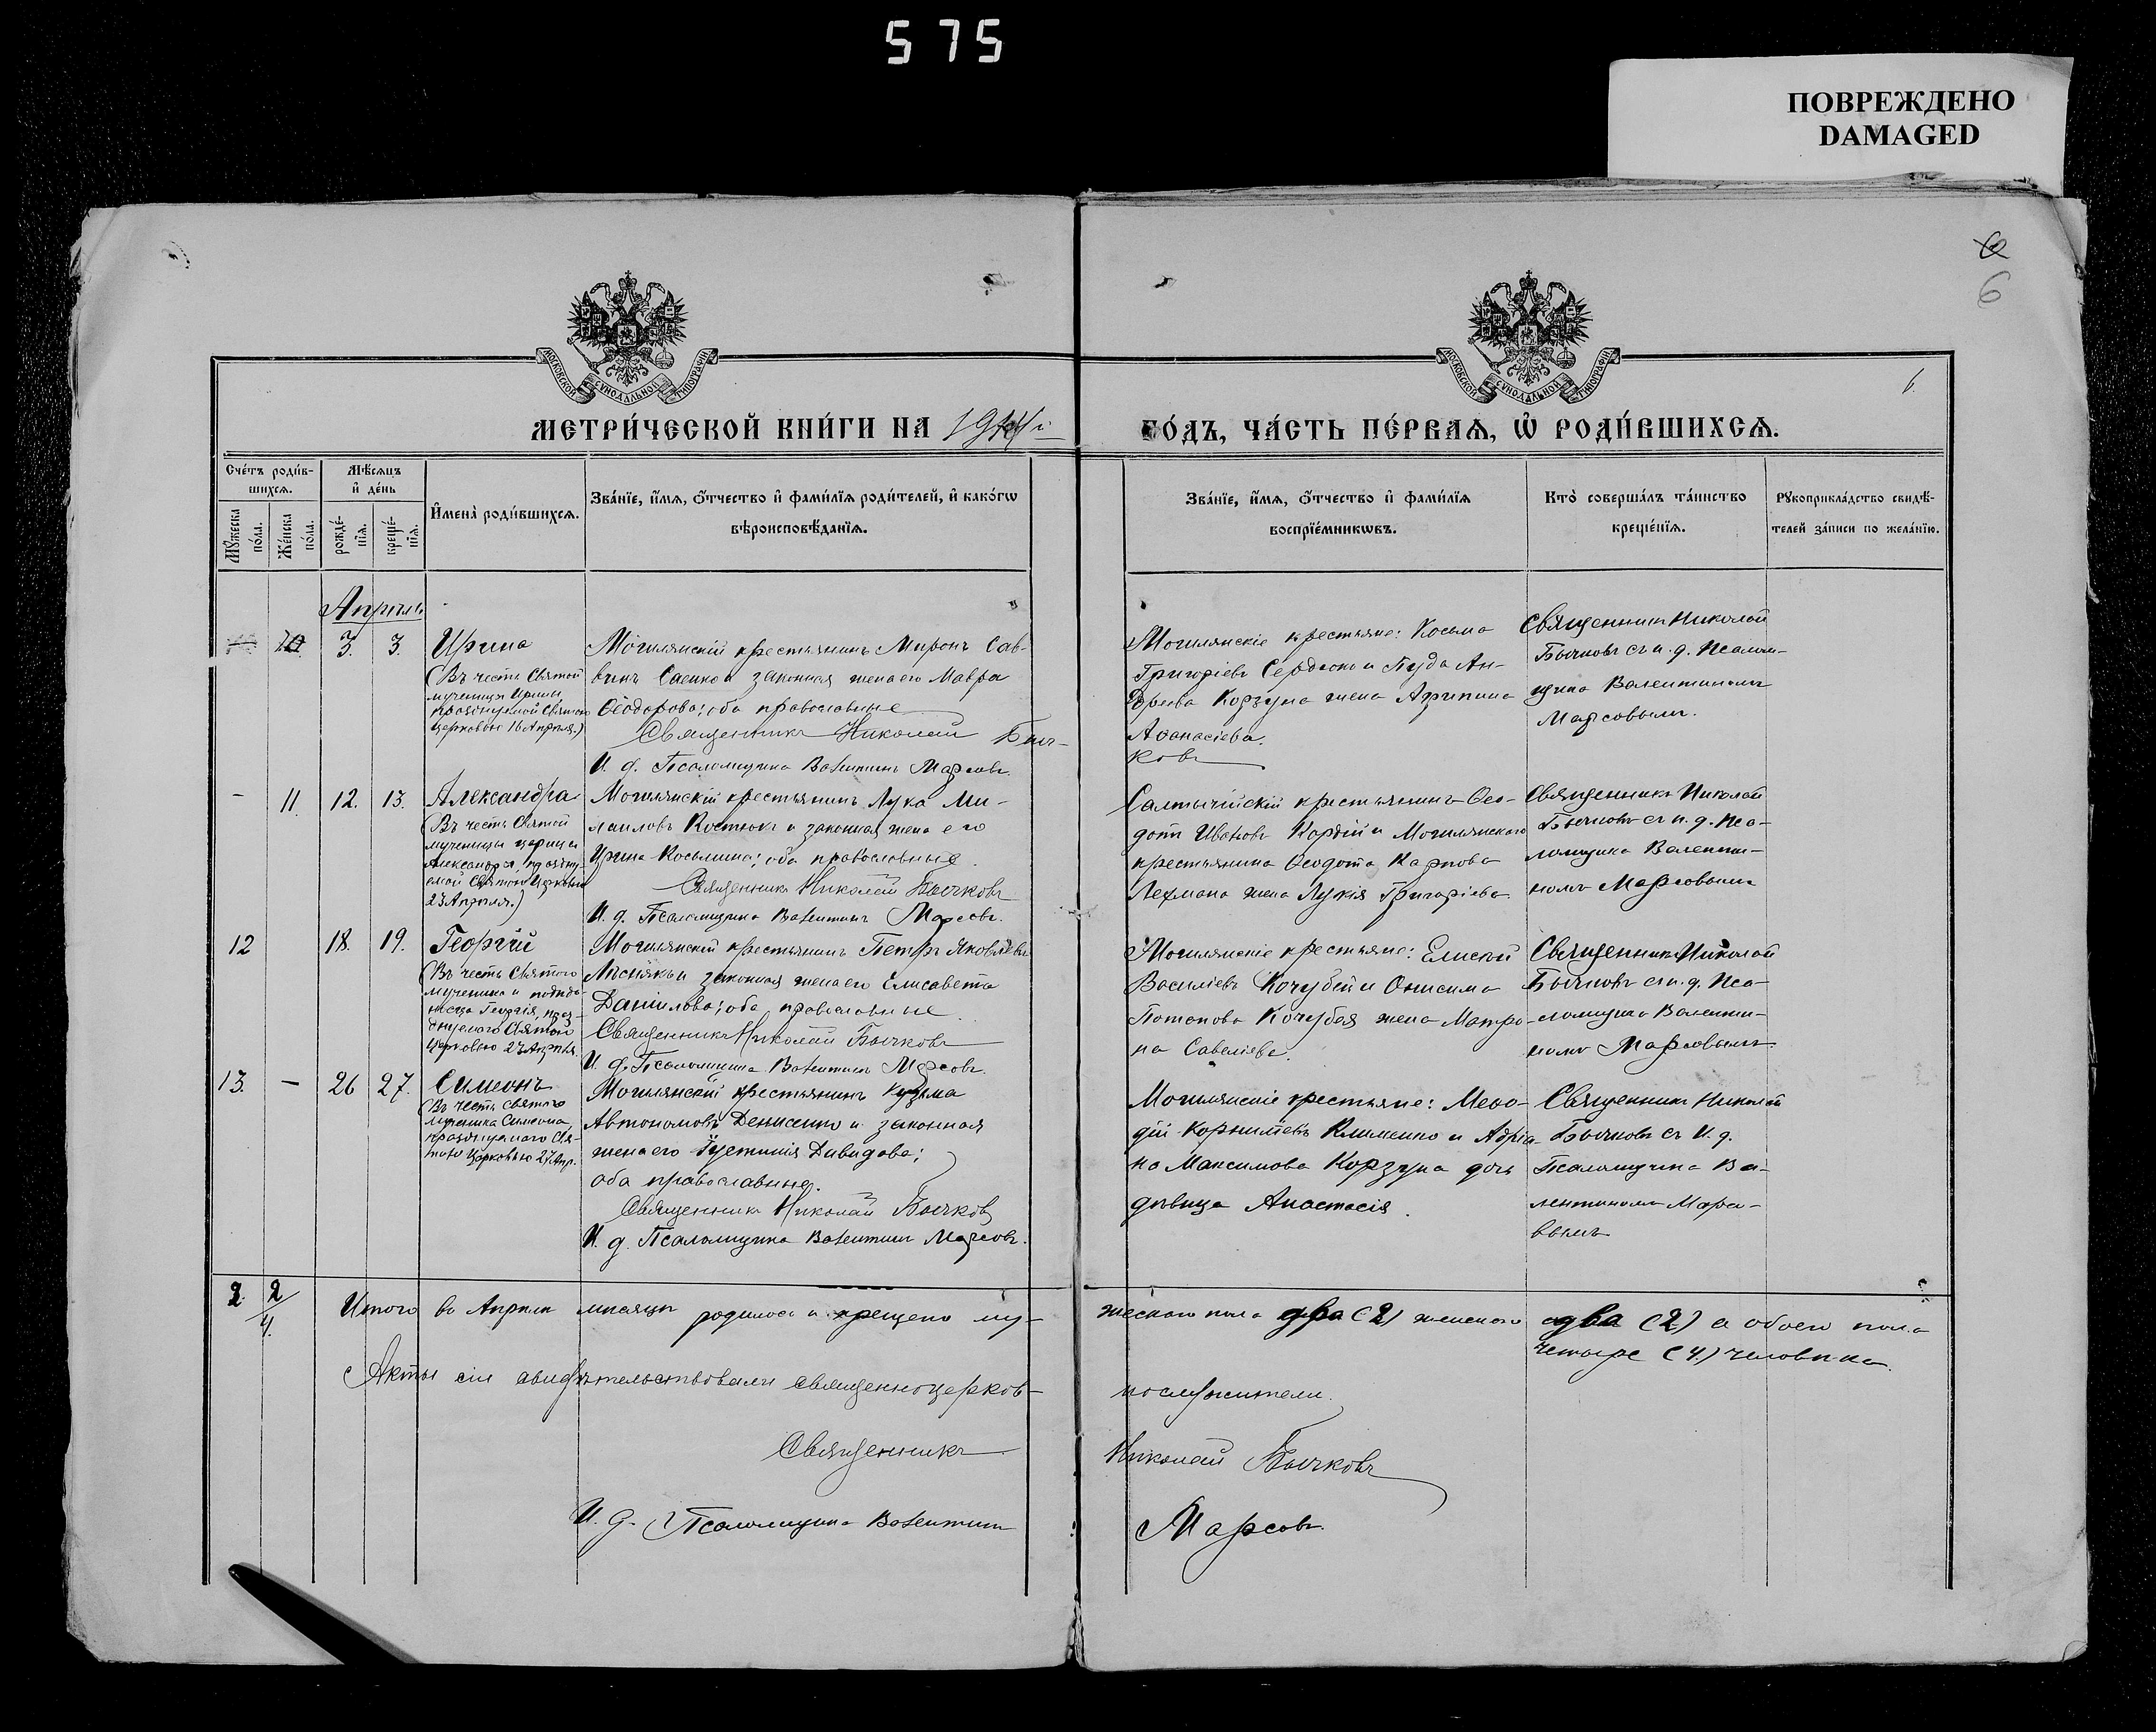 575
ПОВРЕЖДЕНО
DAMAGED
6
6
МОСКОВСКОЙ СѴНОДАЛЬНОЙ ТИПОГРАФІИ
МОСКОВСКОЙ СѴНОДАЛЬНОЙ ТИПОГРАФІИ
МЕТРИ́ЧЕСКОЙ КНИ́ГИ НА 1914
ГО́ДЪ, ЧА́СТЬ ПЕ́РВАѦ, Ѡ҆ РОДИ́ВШИХСѦ.
Сче́тъ роди́в-
шихсѧ.
Мѣ́сѧцъ
и҆ де́нь
Мꙋ́жеска
по́ла.
Же́нска
по́ла.
рожде́-
нїѧ.
креще́-
нїѧ.
И҆мена̀ роди́вшихсѧ.
Зва́нїе, и҆́мѧ, ѻ҆́тчество и҆ фами́лїѧ роди́телей, и҆ како́гѡ
вѣроисповѣ́данїѧ.
Зва́нїе, и҆́мѧ, ѻ҆́тчество и҆ фами́лїѧ
воспрїе́мникѡвъ.
Кто̀ соверша́лъ та́инство
креще́нїѧ.
Рꙋкоприкла́дство свидѣ́-
телей за́писи по жела́нїю.
Апрѣль
10. 3. 3. Ирина
(Въ честь Святой
мученицы Ирины,
празднуемой Святою
церковью 16 Апрѣля.)
Могилянскій крестьянинъ Миронъ Сав-
винъ Саенко и законная жена его Мавра
Ѳеодорова; оба православные
Священникъ Николай Быч-
ковъ
И. д. Псаломщика Валентинъ Марсовъ.
Могилянскіе крестьяне: Косьма
Григоріевъ Сердюко и Пуда Ан-
дреева Корзуна жена Агрипина
Аѳанасіева.
Священникъ Николай
Бычковъ съ и. д. Псалом-
щика Валентиномъ
Марсовымъ.
– 11. 12. 13. Александра
(Въ честь Святой
мученицы царицы
Александры, праздну-
емой Святою Церковью
23 Апрѣля.)
Могилянскій крестьянинъ Лука Ми-
хаиловъ Костюкъ и законная жена его
Ирина Косьмина; оба православные.
Священникъ Николай Бычковъ
И. д. Псаломщика Валентинъ Марсовъ.
Салтычійскій крестьянинъ Ѳео-
дотъ Ивановъ Кордій и Могилянскаго
крестьянина Ѳеодота Карпова
Лехмана жена Лукія Григоріева
Священникъ Николай
Бычковъ съ и. д. Пса-
ломщика Валенти-
номъ Марсовымъ
12 18. 19. Георгій
(Въ честь Святого
мученика и побѣдо-
носца Георгія, праз-
днуемаго Святою
Церковью 23 Апрѣля.
Могилянскій крестьянинъ Петръ Яковлевъ
Лѣснякъ и законная жена его Елисавета
Даніилова; оба православные.
Священникъ Николай Бычковъ
И. д. Псаломщика Валентинъ Марсовъ.
Могилянскіе крестьяне: Елисей
Василіевъ Кочубей и Онисима
Потапова Кочубея жена Матро-
на Савеліева.
Священникъ Николай
Бычковъ съ и. д. Пса-
ломщика Валенти-
номъ Марсовымъ
13. – 26 27. Симеонъ
(Въ честь Святого
Мученика Симеона,
празднуемаго Свя-
тою Церковью 27 Апр.
Могилянскій крестьянинъ Кузьма
Автономовъ Денисенко и законная
жена его Іустинія Давидова;
оба православные.
Священникъ Николай Бычковъ
И. д. Псаломщика Валентинъ Марсовъ.
Могилянскіе крестьяне: Меѳо-
дій Корниліевъ Клименко и Адріа-
на Максимова Корзуна дочь
дѣвица Анастасія.
Священникъ Николай
Бычковъ съ И. д.
Псаломщика Ва-
лентиномъ Марсо-
вымъ
2 2
4.
Итого въ Апрѣлѣ мѣсяцѣ родилось и крещено му-
жескаго пола два (2) женскаго два (2) а обоего пола
четыре (4.) человѣка.
Акты сіи свидѣтельствовали священноцерков-
нослужители.
Священникъ Николай Бычковъ
И. д. Псаломщика Валентинъ Марсовъ.